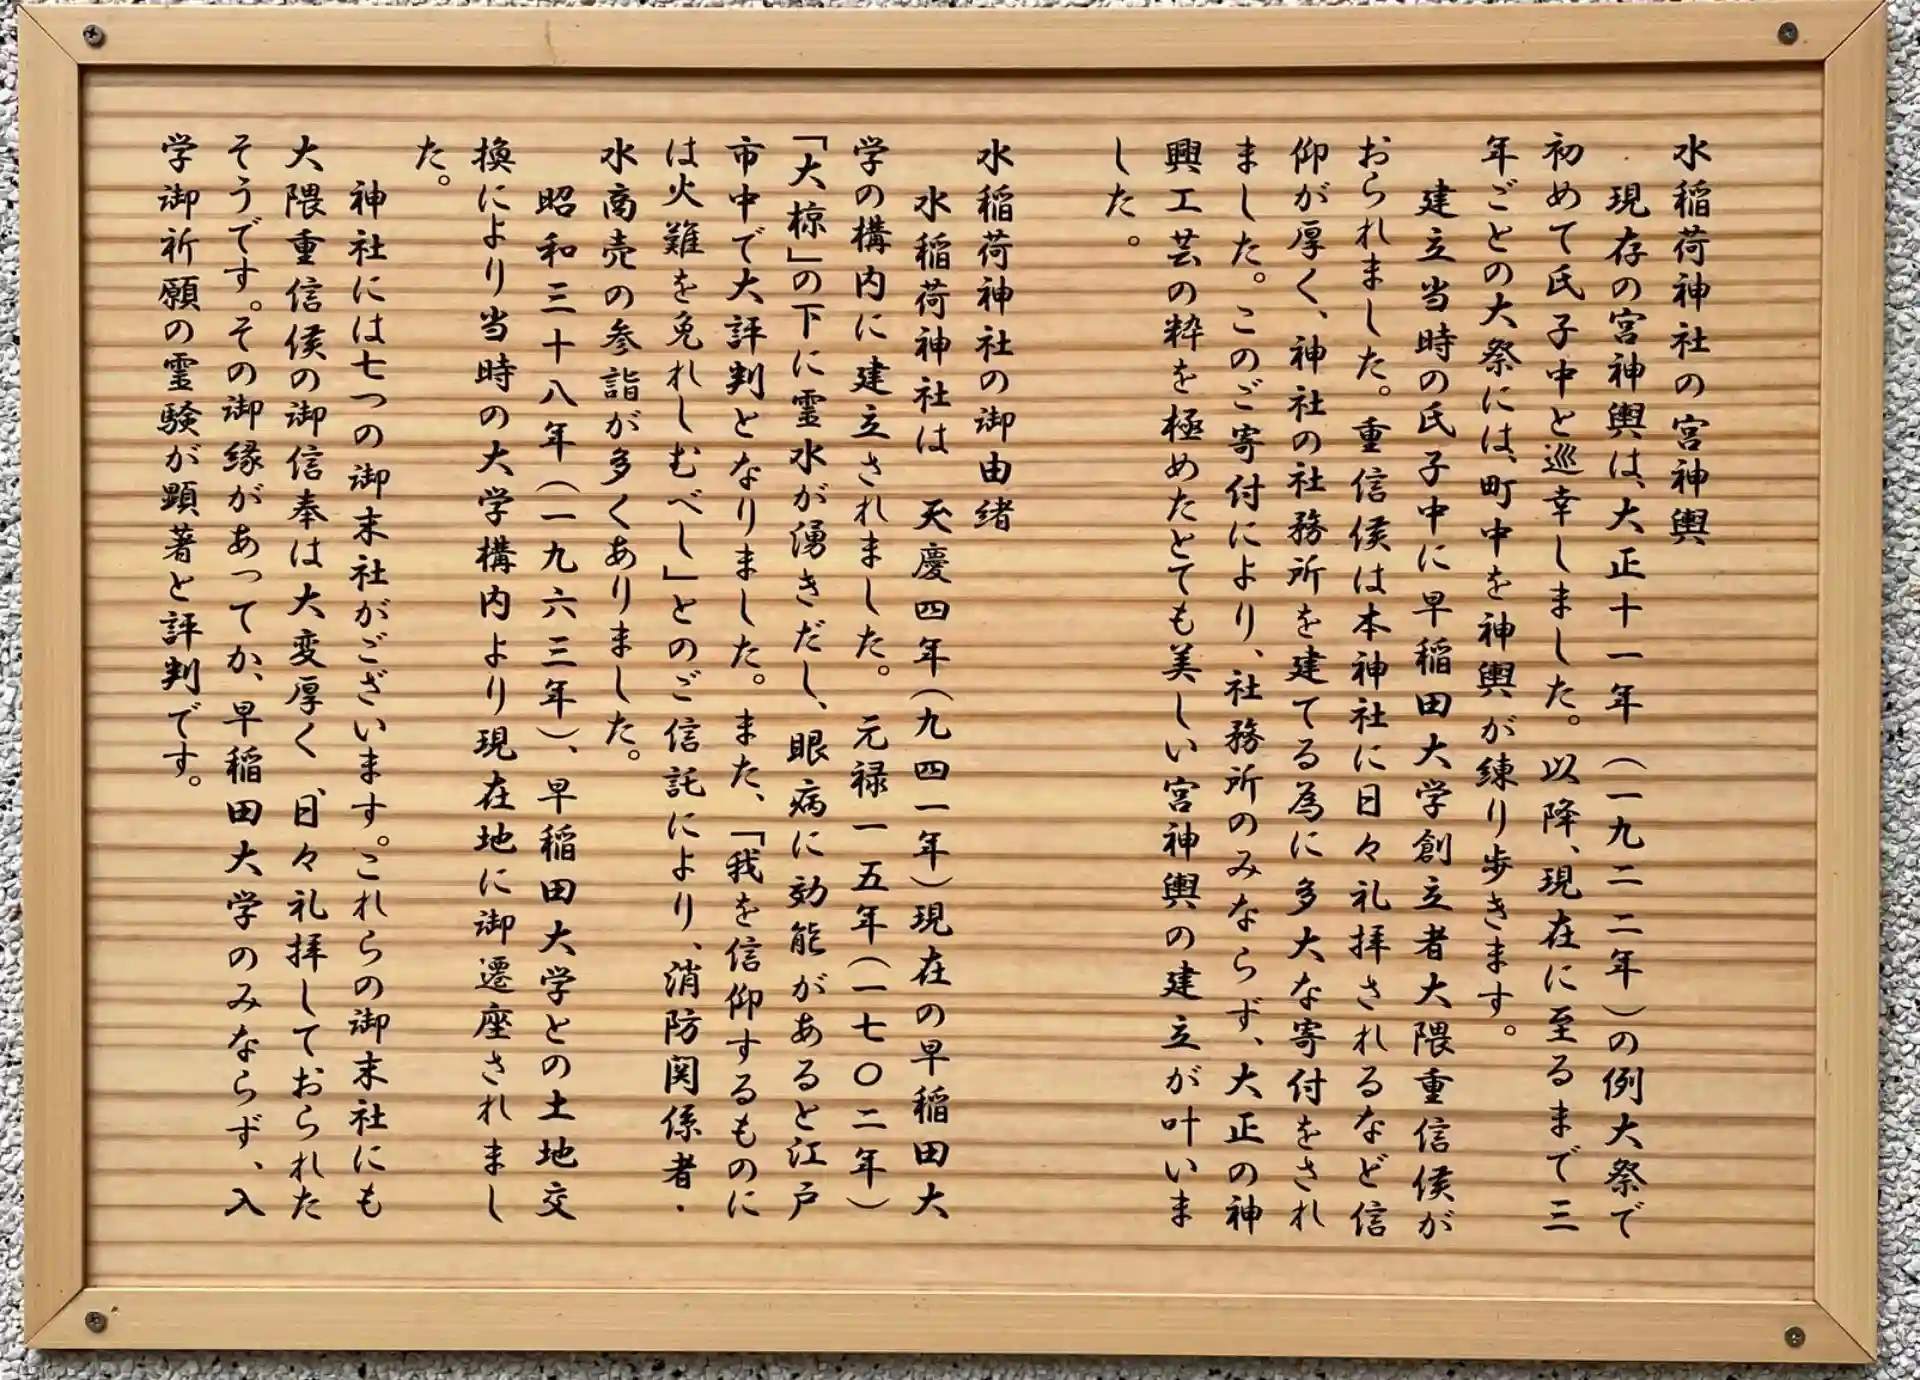 水稲荷神社の宮神輿
現存の宮神輿は、大正十一年（一九二二年）の例大祭で
初めて氏子中と巡幸しました。以降、現在に至るまで三
年ごとの大祭には、町中を神輿が練り歩きます。
建立当時の氏子中に早稲田大学創立者大隈重信侯が
おられました。重信侯は本神社に日々礼拝されるなど信
仰が厚く、神社の社務所を建てる為に多大な寄付をされ
ました。このご寄付により、社務所のみならず、大正の神
輿工芸の粋を極めたとても美しい宮神輿の建立が叶いま
した。
水稲荷神社の御由緒
水稲荷神社は　天慶四年（九四一年）現在の早稲田大
学の構内に建立されました。元禄一五年（一七〇二年）
「大椋」の下に霊水が湧きだし、眼病に効能があると江戸
市中で大評判となりました。また、「我を信仰するものに
は火難を免れしむべし」とのご信託により、消防関係者・
水商売の参詣が多くありました。
昭和三十八年（一九六三年）、早稲田大学との土地交
換により当時の大学構内より現在地に御遷座されまし
た。
神社には七つの御末社がございます。これらの御末社にも
大隈重信侯の御信奉は大変厚く、日々礼拝しておられた
そうです。その御縁があってか、早稲田大学のみならず、入
学御祈願の霊験が顕著と評判です。